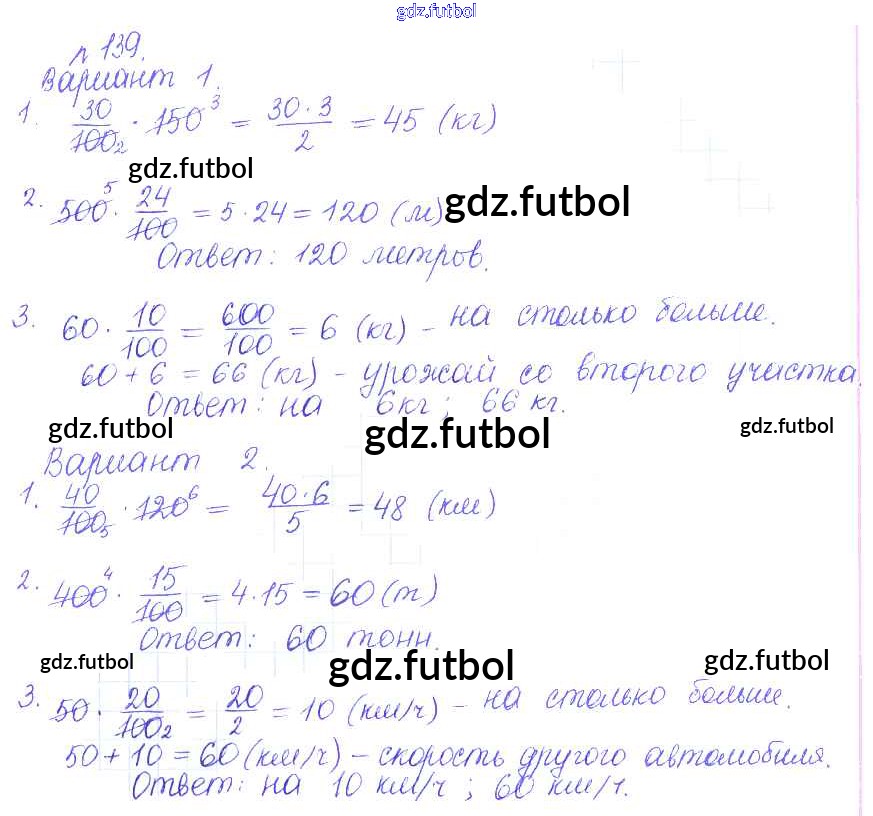 gdz.futbol
п 139.
Вариант 1.
1. 30/100₂ · 150³ = 30·3/2 = 45 (кг)
gdz.futbol
2. 500⁵ · 24/100 = 5·24 = 120 (м)
gdz.futbol
Ответ: 120 метров.
3. 60 · 10/100 = 600/100 = 6 (кг) – на столько больше.
60 + 6 = 66 (кг) – урожай со второго участка.
Ответ: на 6 кг; 66 кг.
gdz.futbol gdz.futbol gdz.futbol
Вариант 2.
1. 40/100₅ · 120⁶ = 40·6/5 = 48 (км)
2. 400⁴ · 15/100 = 4·15 = 60 (т)
Ответ: 60 тонн.
gdz.futbol gdz.futbol gdz.futbol
3. 50 · 20/100₂ = 20/2 = 10 (км/ч) – на столько больше.
50 + 10 = 60 (км/ч) – скорость другого автомобиля.
Ответ: на 10 км/ч; 60 км/ч.